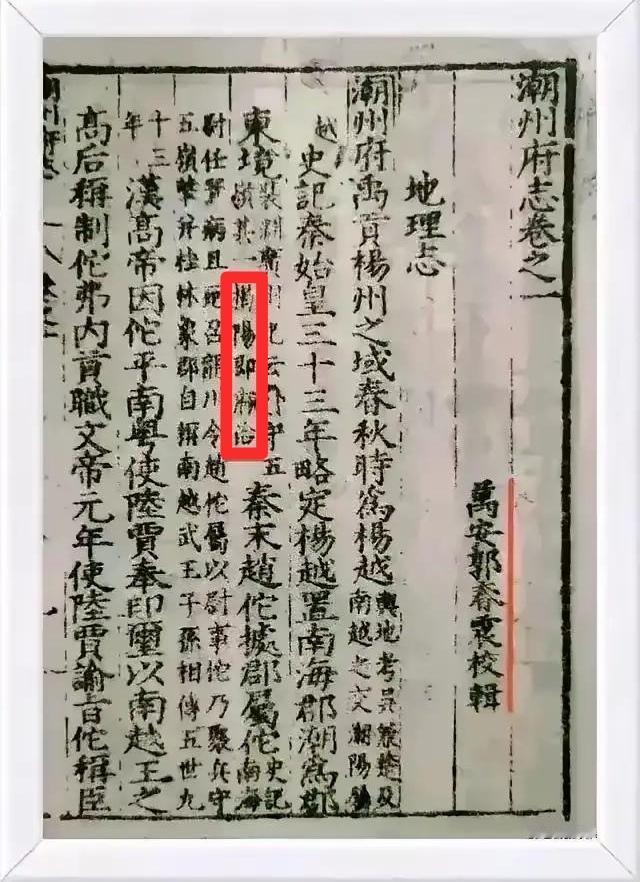 潮州府志卷之一
萬安郭春震校輯
地理志
潮州府禹貢楊州之域春秋時爲楊越
輿地考吳蠻楚及
南越之交潮陽
越
史記秦始皇三十三年略定楊越置南海郡潮爲郡
東境
裴淵廣州記云守五
嶺其一揭陽即縣治
秦末趙佗據郡屬佗
史記
南海
尉任囂病且死召龍川令趙佗屬以尉事佗乃聚兵守
五嶺擊并桂林象郡自稱南越武王子孫相傳五世九
十三
年
漢高帝因佗平南粵使陸賈奉印璽以南越王之
高后稱制佗弗内貢職文帝元年使陸賈諭旨佗稱臣